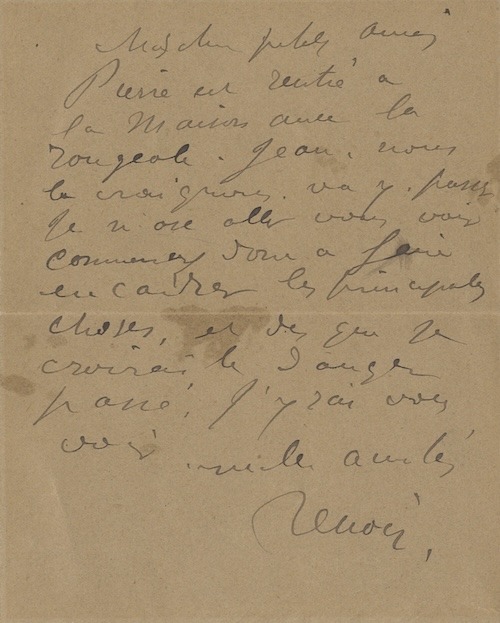 Mes chers petits amis
Pierre est rentré à
la maison avec la
rougeole. Jean, nous
le craignons. va y. passer
Je n ose aller vous voir
commencez donc a faire
encadrer les principales
choses, et des que je
croirai le danger
passé, J'y rai vous
voir. mille amitiés
Renoir,